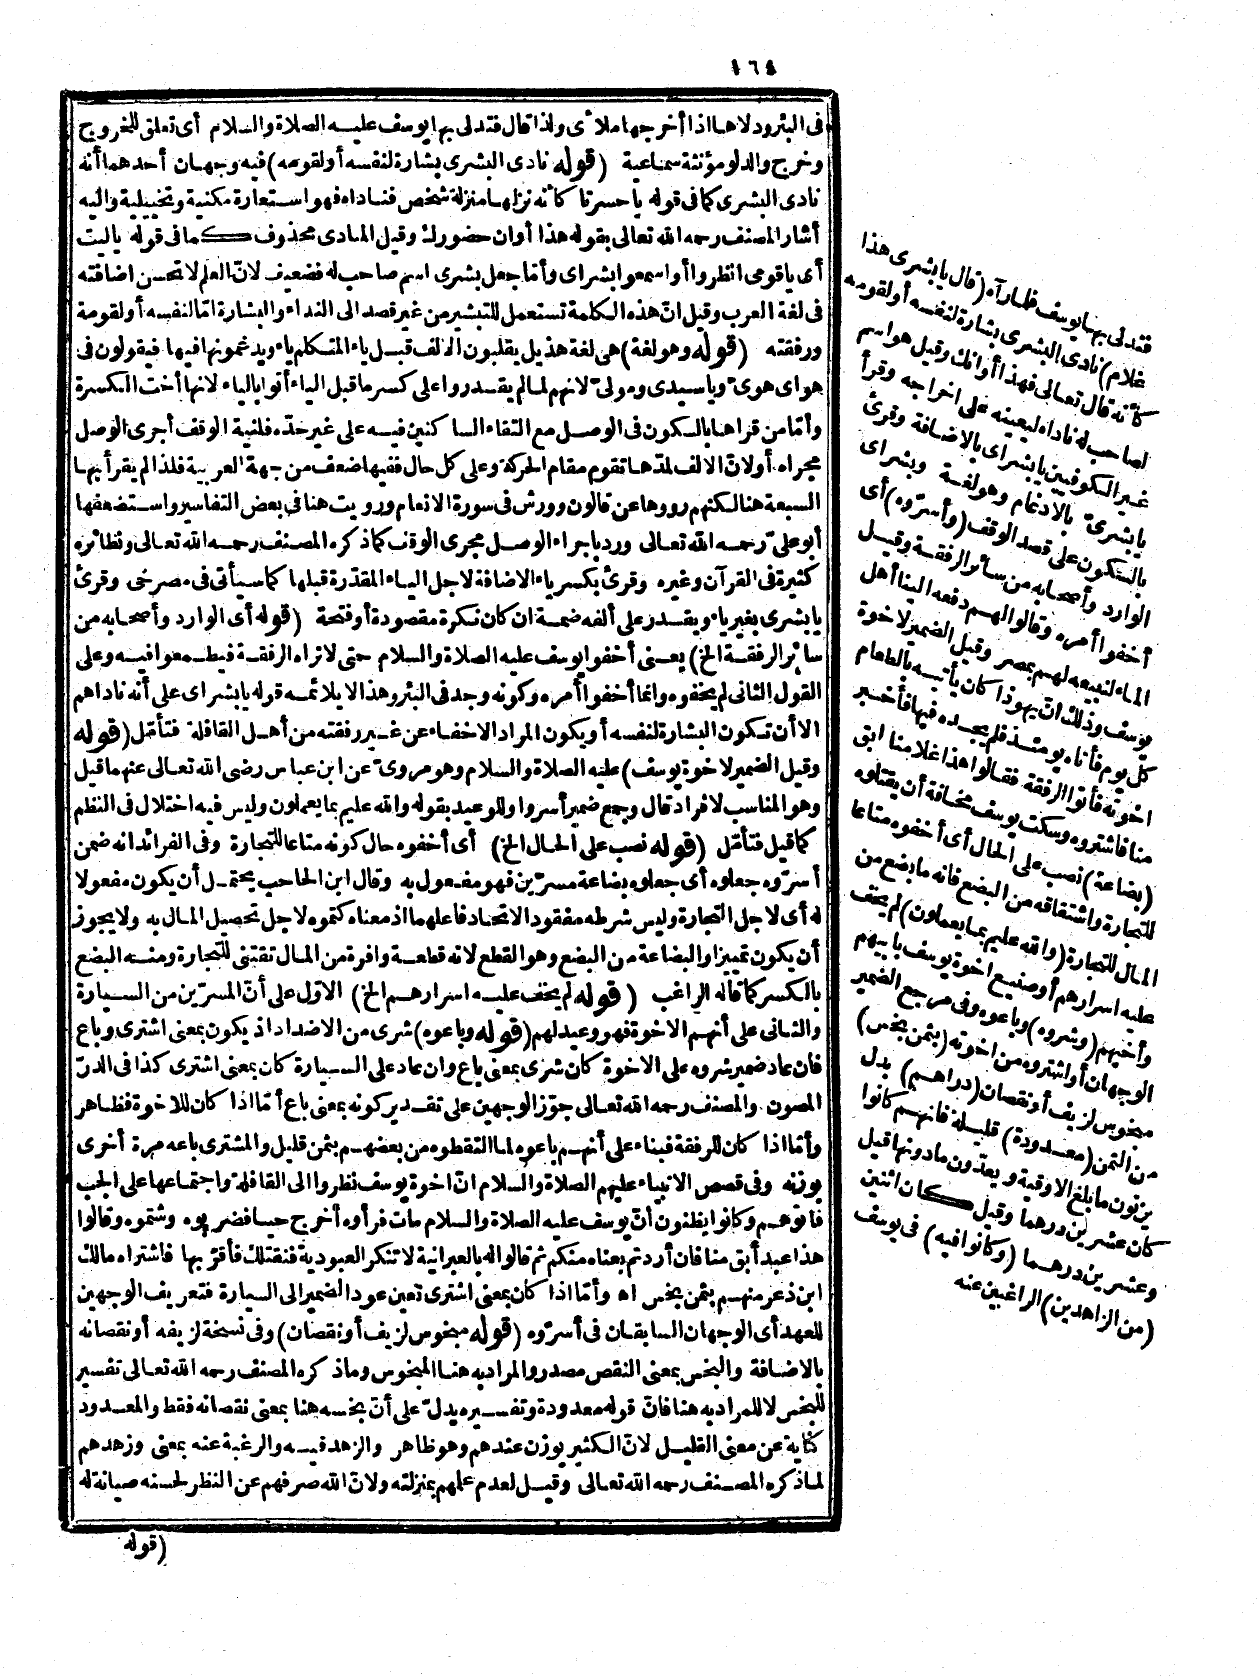 ١٦٤
فى البئر ودلاها اذا أخرجها ملأى ولذا قال فتدلى بها يوسف عليه الصلاة والسلام أى تعلق للخروج
وخرج والدلو مؤنثة سماعية (قوله نادى البشرى بشارة لنفسه أولقومه) فيه وجهان أحدهما أنه
نادى البشرى كما فى قوله يا حسرتا كأنه نزلها منزلة شخص فناداه فهو استعارة مكنية وتخييلية واليه
أشار المصنف رحمه الله تعالى بقوله هذا أوان حضورك وقيل المنادى محذوف كما فى قوله ياليت
أى ياقومى انظروا أو اسمعوا بشراى وأما جعل بشرى اسم صاحب له فضعيف لانّ العلم لا تحسن اضافته
فى لغة العرب وقيل انّ هذه الكلمة تستعمل للتبشير من غير قصد الى النداء والبشارة امّا لنفسه أو لقومه
ورفقته (قوله وهو لغة) هى لغة هذيل يقلبون الالف قبل ياء المتكلم ياء ويدغمونها فيها فيقولون فى
هواى هوىّ وياسيدى ومولىّ لانهم لما لم يقدروا على كسر ما قبل الياء أتوا بالياء لانها أخت الكسرة
وأمّا من قراها بالسكون فى الوصل مع التقاء الساكنين فيه على غير حدّه فلنية الوقف أجرى الوصل
مجراه أولانّ الالف لمدّها تقوم مقام الحركة وعلى كل حال ففيها ضعف من جهة العربية فلذا لم يقرأ بها
السبعة هنا لكنهم رووها عن قالون وورش فى سورة الانعام ورويت هنا فى بعض التفاسير واستضعفها
أبو علىّ رحمه الله تعالى وردبا جراء الوصل مجرى الوقف كما ذكره المصنف رحمه الله تعالى ونظائره
كثيرة فى القرآن وغيره وقرئ بكسر ياء الاضافة لاجل الياء المقدّرة قبلها كما سيأتى فى مصرخى وقرئ
يا بشرى بغير ياء ويقدر على ألفه ضمة ان كان نكرة مقصودة أو فتحة (قوله أى الوارد وأصحابه من
سائر الرفقة الخ) يعنى أخفوا يوسف عليه الصلاة والسلام حتى لاتراه الرفقة فيطمعوا فيه وعلى
القول الثانى لم يخفوه وانما أخفوا أمره وكونه وجد فى البئر وهذا لا يلائمه قوله يا بشراى على أنه ناداهم
الا أن تكون البشارة لنفسه أو يكون المراد الاخفاء عن غير رفقته من أهل القافلة فتأمّل (قوله
وقيل الضمير لاخوة يوسف) عليه الصلاة والسلام وهو مروىّ عن ابن عباس رضى الله تعالى عنهما قيل
وهو المناسب لافراد قال وجمع ضمير أسروا وللوعيد بقوله والله عليم بما يعملون وليس فيه اختلال فى النظم
كما قيل فتأمّل (قوله نصب على الحال الخ) أى أخفوه حال كونه متاعا للتجارة وفى الفرائد انه ضمن
أسرّوه جعلوه أى جعلوه بضاعة مسرّين فهو مفعول به وقال ابن الحاجب يحتمل أن يكون مفعولا
له أى لاجل التجارة وليس شرطه مفقودا لاتحاد فاعلهما اذ معناه كتموه لاجل تحصيل المال به ولا يجوز
أن يكون تمييزا والبضاعة من البضع وهو القطع لانه قطعة وافرة من المال تقتنى للتجارة ومنه البضع
بالكسر كما قاله الراغب (قوله لم يخف عليه اسرارهم الخ) الاوّل على أنّ المسرّين من السيارة
والثانى على أنهم الاخوة فهو وعيد لهم (قوله وباعوه) شرى من الاضداد اذ يكون بمعنى اشترى وباع
فان عاد ضمير شروه على الاخوة كان شرى بمعنى باع وان عاد على السيارة كان بمعنى اشترى كذا فى الدرّ
المصون والمصنف رحمه الله تعالى جوّز الوجهين على تقدير كونه بمعنى باع أمّا اذا كان للاخوة فظاهر
وأمّا اذا كان للرفقة فبناء على أنهم باعوه لما التقطوه من بعضهم بثمن قليل والمشترى باعه مرة أخرى
بوزنه وفى قصص الانبياء عليهم الصلاة والسلام انّ اخوة يوسف نظروا الى القافلة واجتماعها على الجب
فأتوهم وكانوا يظنون أنّ يوسف عليه الصلاة والسلام مات فرأوه أخرج حيا فضربوه وشتموه وقالوا
هذا عبد أبق منا فان أردتم بعناه منكم ثم قالوا له بالعبرانية لا تنكر العبودية فنقتلك فأقرّ بها فاشتراه مالك
ابن ذعر منهم بثمن بخس اه وأمّا اذا كان بمعنى اشترى تعين عود الضمير الى السيارة فتعريف الوجهين
للعهد أى الوجهان السابقان فى أسرّوه (قوله مبخوس لزيف أو نقصان) وفى نسخة لزيفه أو نقصانه
بالاضافة والبخس بمعنى النقص مصدر والمراد به هنا المبخوس وما ذكره المصنف رحمه الله تعالى تفسير
للبخس لا للمراد به هنا فانّ قوله معدودة وتفسيره يدلّ على أنّ بخسه هنا بمعنى نقصانه فقط والمعدود
كناية عن معنى القليل لانّ الكثير يوزن عندهم وهو ظاهر والزهد فيه والرغبة عنه بمعنى وزهدهم
لما ذكره المصنف رحمه الله تعالى وقيل لعدم علمهم بمنزلته ولانّ الله صرفهم عن النظر لحسنه صيانة له
(قوله
فتدلى بها يوسف فلما رآه (قال يا بشرى هذا
غلام) نادى البشرى بشارة لنفسه أو لقومه
كأنه قال تعالى فهذا أوانك وقيل هو اسم
لصاحب له ناداه ليعينه على اخراجه وقرأ
غير الكوفيين يا بشراى بالاضافة وقرئ
يا بشرىّ بالادغام وهو لغة وبشراى
بالسكون على قصد الوقف (وأسرّوه) أى
الوارد وأصحابه من سائر الرفقة وقيل
أخفوا أمره وقالوا لهم دفعه الينا أهل
الماء لنبيعه لهم بمصر وقيل الضمير لاخوة
يوسف وذلك انّ يهوذا كان يأتيه بالطعام
كل يوم فأتاه يومئذ فلم يجده فيها فأخبر
اخوته فأتوا الرفقة فقالوا هذا غلامنا ابق
منا فاشتروه وسكت يوسف مخافة أن يقتلوه
(بضاعة) نصب على الحال أى أخفوه متاعا
للتجارة واشتقاقه من البضع فانه ما بضع من
المال للتجارة (والله عليم بما يعملون) لم يخف
عليه اسرارهم أو صنيع اخوة يوسف بأبيهم
وأخيهم (وشروه) وباعوه وفى مرجع الضمير
الوجهان أو اشتروه من اخوته (بثمن بخس)
مبخوس لزيف أو نقصان (دراهم) بدل
من الثمن (معدودة) قليلة فانهم كانوا
يزنون ما بلغ الاوقية ويعدّون ما دونها قيل
كان عشرين درهما وقيل كان اثنين
وعشرين درهما (وكانوا فيه) فى يوسف
(من الزاهدين) الراغبين عنه